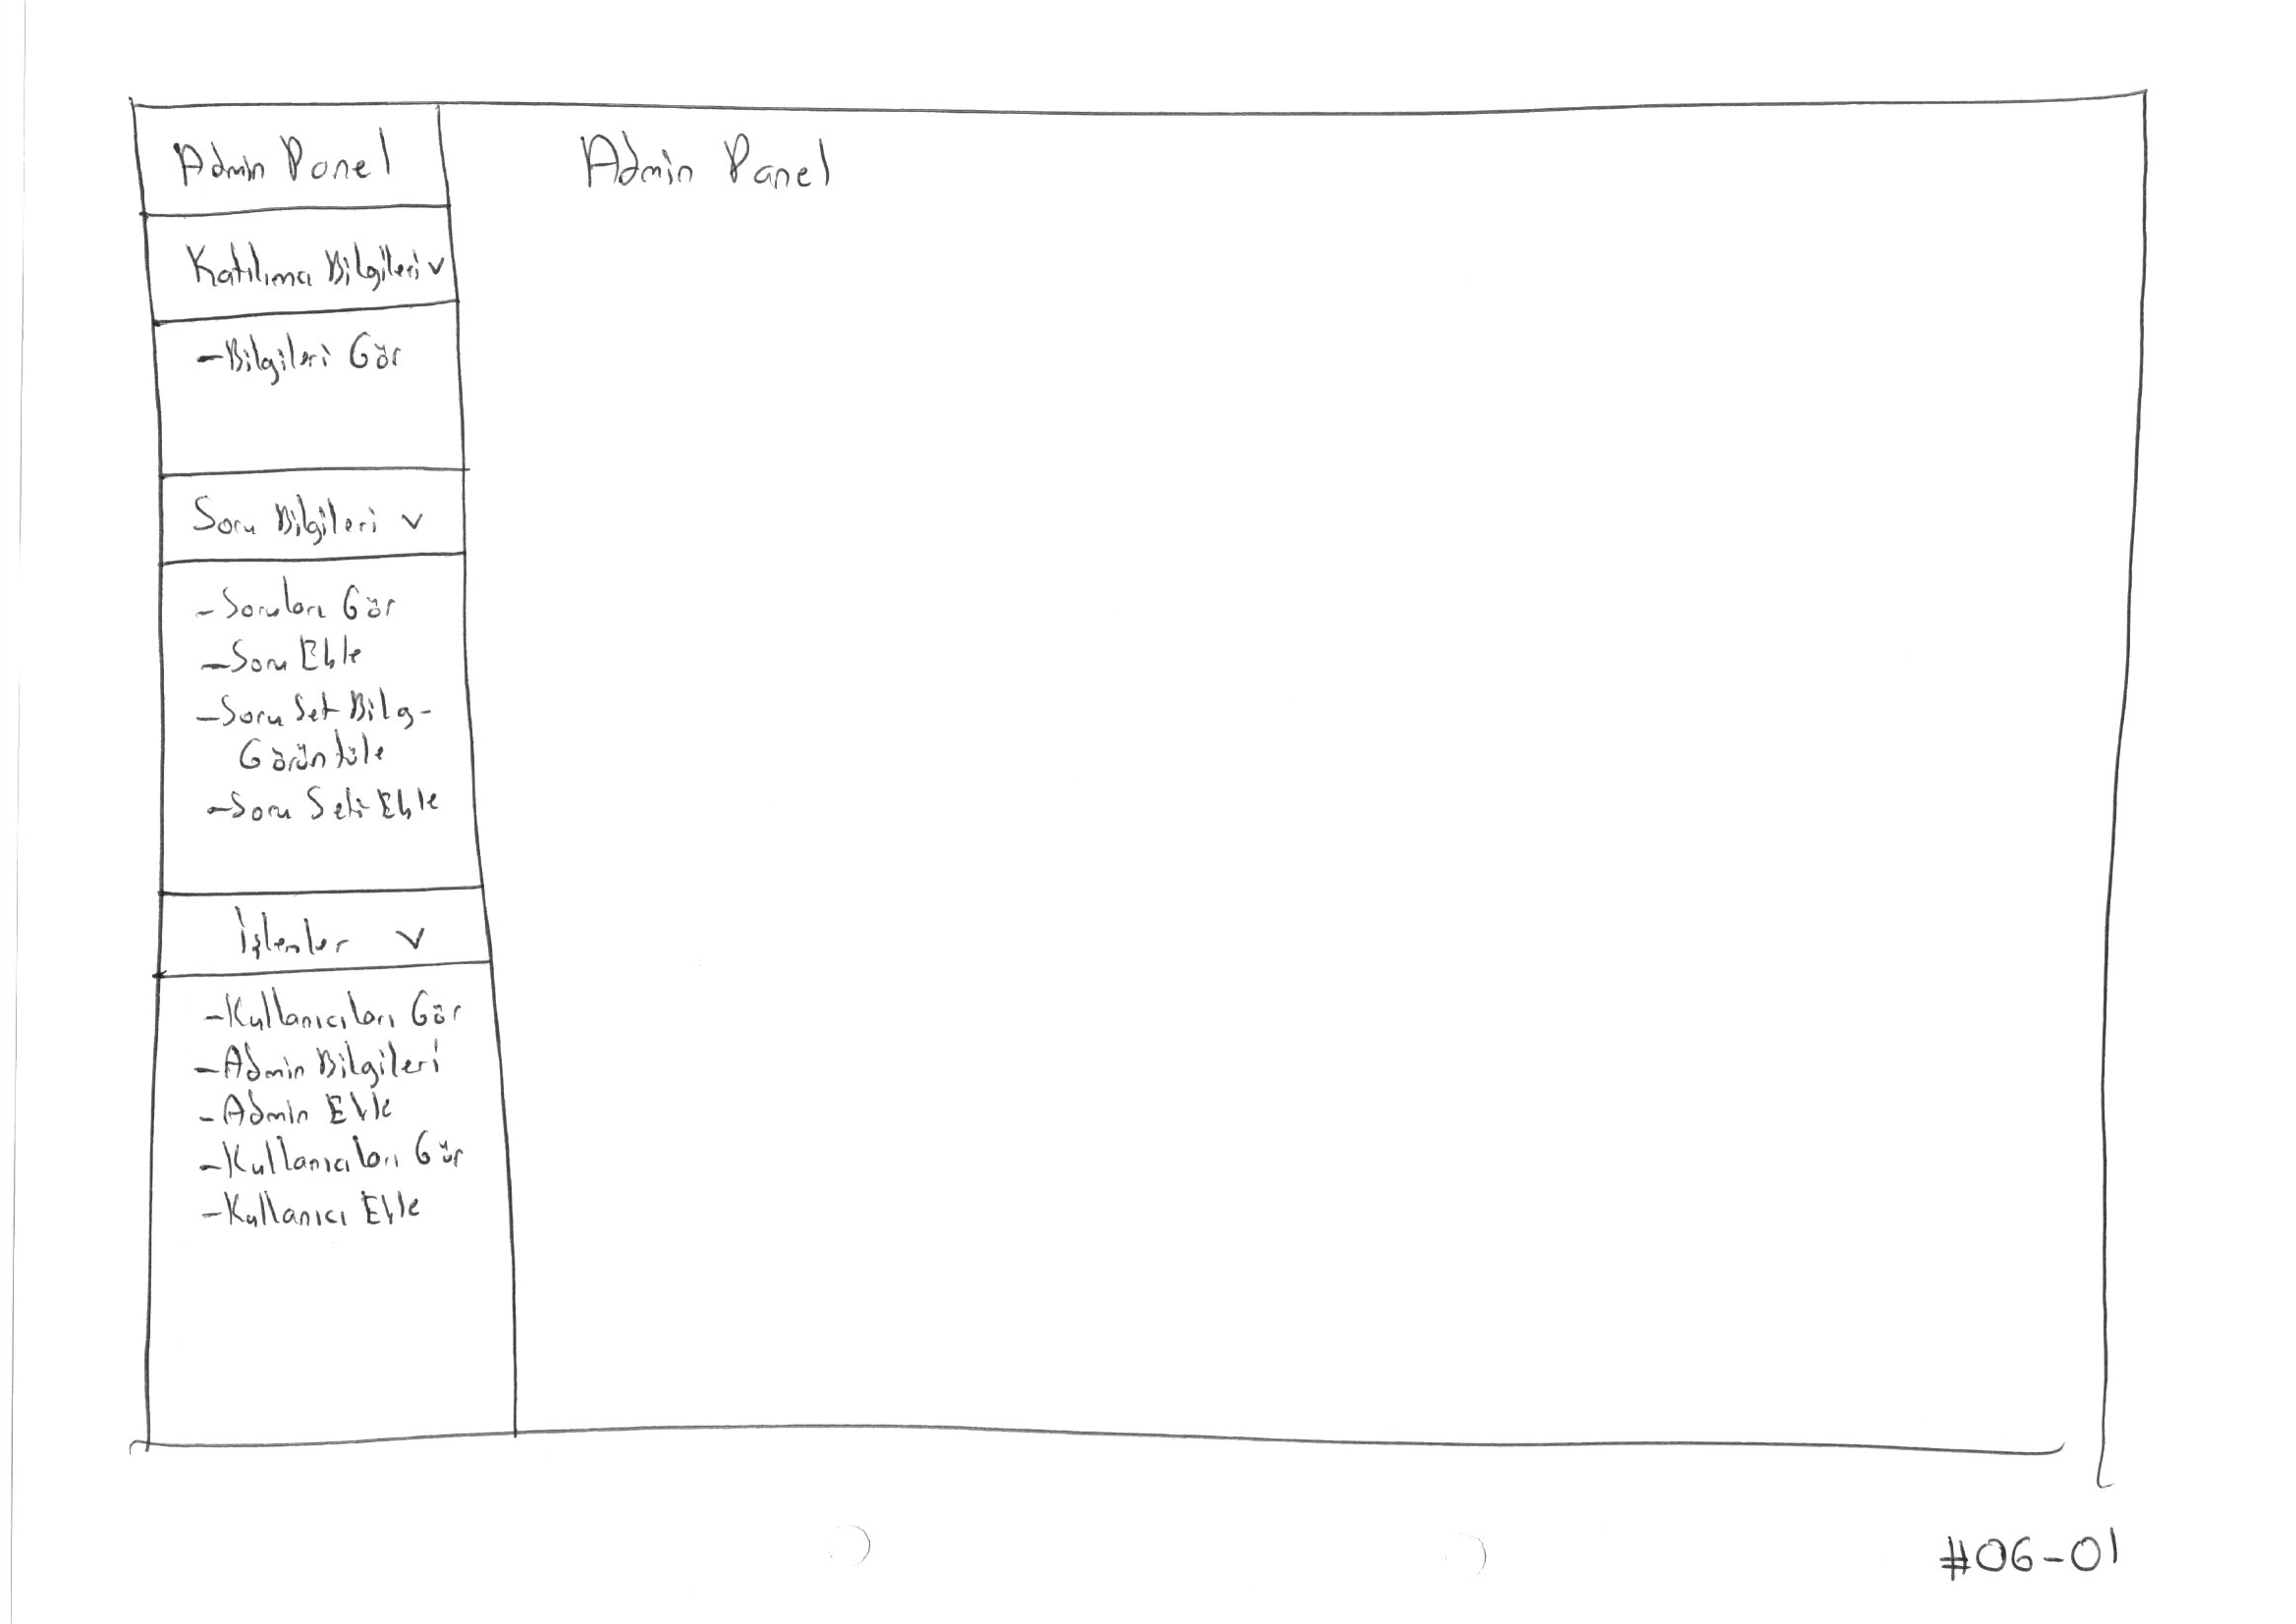 Admin Panel
Katılımcı Bilgileri v
-Bilgileri Gör
Soru Bilgileri v
-Soruları Gör
-Soru Ekle
-Soru Set Bilg-
Görüntüle
-Soru Seti Ekle
İşlemler v
-Kullanıcıları Gör
-Admin Bilgileri
-Admin Ekle
-Kullanıcıları Gör
-Kullanıcı Ekle
Admin Panel
#06-01